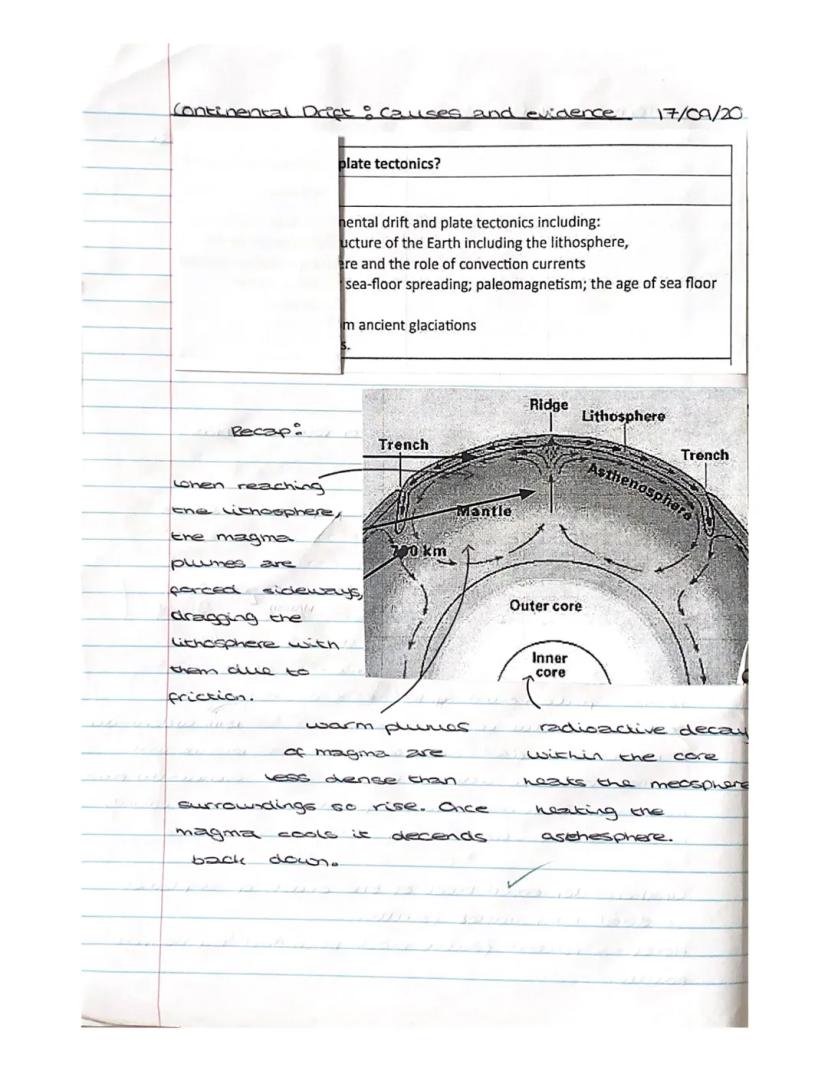 Continental Drift : Causes and evidence 17/09/20
plate tectonics?
nental drift and plate tectonics including:
ucture of the Earth including the lithosphere,
ere and the role of convection currents
sea-floor spreading; paleomagnetism; the age of sea floor
m ancient glaciations
s.
Recap:
Ridge
Lithosphere
Trench
Trench
Asthenosphere
Mantle
700 km
Outer core
Inner
core
when reaching
the lithosphere,
the magma
plumes are
forced sideways,
dragging the
lithosphere with
them due to
friction.
warm plumes
of magma are
less dense than
surroundings so rise. Once
magma cools it decends
back down.
radioactive decay
within the core
heats the meosphere
heating the
asthesphere.